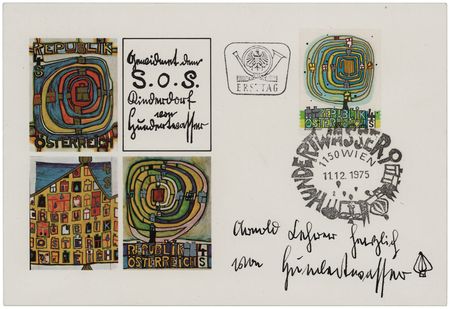 REPUBLIK
ÖSTERREICH
Gewidmet dem
S.O.S.
Kinderdorf
von
Hundertwasser
ERSTTAG
REPUBLIK
ÖSTERREICH
HUNDERTWASSER
1150 WIEN
11.12.1975
REPUBLIK 4 S
ÖSTERREICH
Arnold Lehrer herzlich
von Hundertwasser